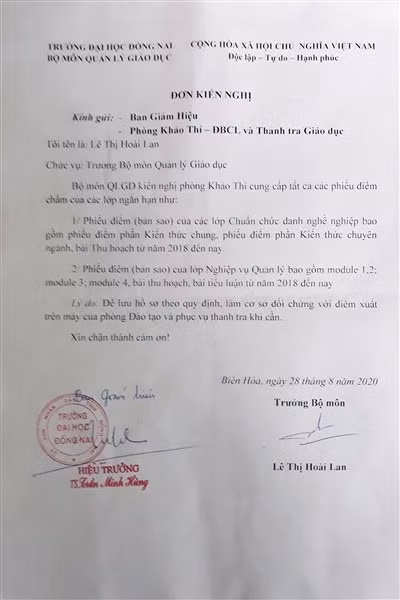 TRƯỜNG ĐẠI HỌC ĐỒNG NAI
BỘ MÔN QUẢN LÝ GIÁO DỤC
CỘNG HÒA XÃ HỘI CHỦ NGHĨA VIỆT NAM
Độc lập – Tự do – Hạnh phúc
ĐƠN KIẾN NGHỊ
Kính gửi: - Ban Giám Hiệu
- Phòng Khảo Thí – ĐBCL và Thanh tra Giáo dục
Tôi tên là: Lê Thị Hoài Lan
Chức vụ: Trưởng Bộ môn Quản lý Giáo dục
Bộ môn QLGD kiến nghị phòng Khảo Thí cung cấp tất cả các phiếu điểm
chấm của các lớp ngắn hạn như:
1/ Phiếu điểm (bản sao) của các lớp Chuẩn chức danh nghề nghiệp bao
gồm phiếu điểm phần Kiến thức chung, phiếu điểm phần Kiến thức chuyên
ngành, bài Thu hoạch từ năm 2018 đến nay
2/ Phiếu điểm (bản sao) của lớp Nghiệp vụ Quản lý bao gồm module 1,2;
module 3; module 4, bài thu hoạch, bài tiểu luận từ năm 2018 đến nay
Lý do: Để lưu hồ sơ theo quy định, làm cơ sở đối chứng với điểm xuất
trên máy của phòng Đào tạo và phục vụ thanh tra khi cần.
Xin chân thành cảm ơn!
Biên Hòa, ngày 28 tháng 8 năm 2020
Trưởng Bộ môn
Lê Thị Hoài Lan
TRƯỜNG
ĐẠI HỌC
ĐỒNG NAI
HIỆU TRƯỞNG
TS.Trần Minh Hùng